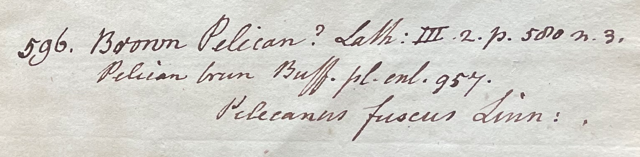 596. Brown Pelican? Lath: III. 2. p. 580 n. 3.
Pelican brun Buff. pl. enl. 957.
Pelecanus fuscus Linn: .